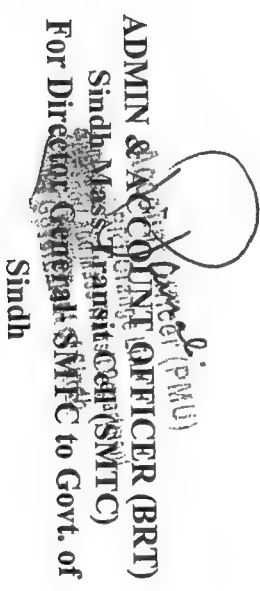 ADMIN & ACCOUNT OFFICER (BRT)
Sindh Mass Transit Cell (SMTC)
For Director General SMTC to Govt. of
Sindh
(PMU)